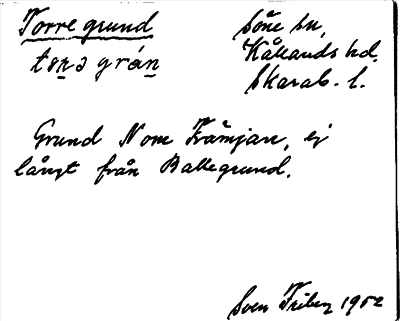 Torregrund
Söne sn,
Kållands hd.
Skarab. l.
Grund N om Främjan, ej
långt från Ballegrund.
Sven Friberg 1952